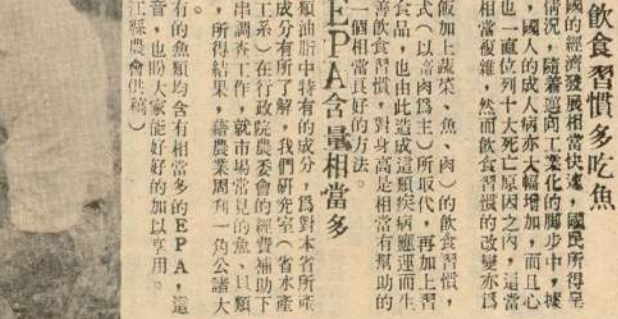 飲食習慣多吃魚
國的經濟發展相當快速，國民所得呈
情況，隨着邁向工業化的脚步中，據
，國人的成人病亦大幅增加，而且心
也一直位列十大死亡原因之內，這當
相當複雜，然而飲食習慣的改變亦爲
飯加上蔬菜、魚、肉）的飲食習慣，
式（以畜肉爲主）所取代，再加上習
食品，也由此造成這類疾病應運而生
善飲食習慣，對身高是相當有幫助的
一個相當良好的方法。
EPA含量相當多
類油脂中特有的成分，爲對本省所產
成分有所了解，我們研究室（省水產
工系）在行政院農委會的經費補助下
串調查工作，就市場常見的魚、貝類
，所得結果，藉農業周刊一角公諸大
。
有的魚類均含有相當多的EPA，這
音，也盼大家能好好的加以享用。
江縣農會供稿）